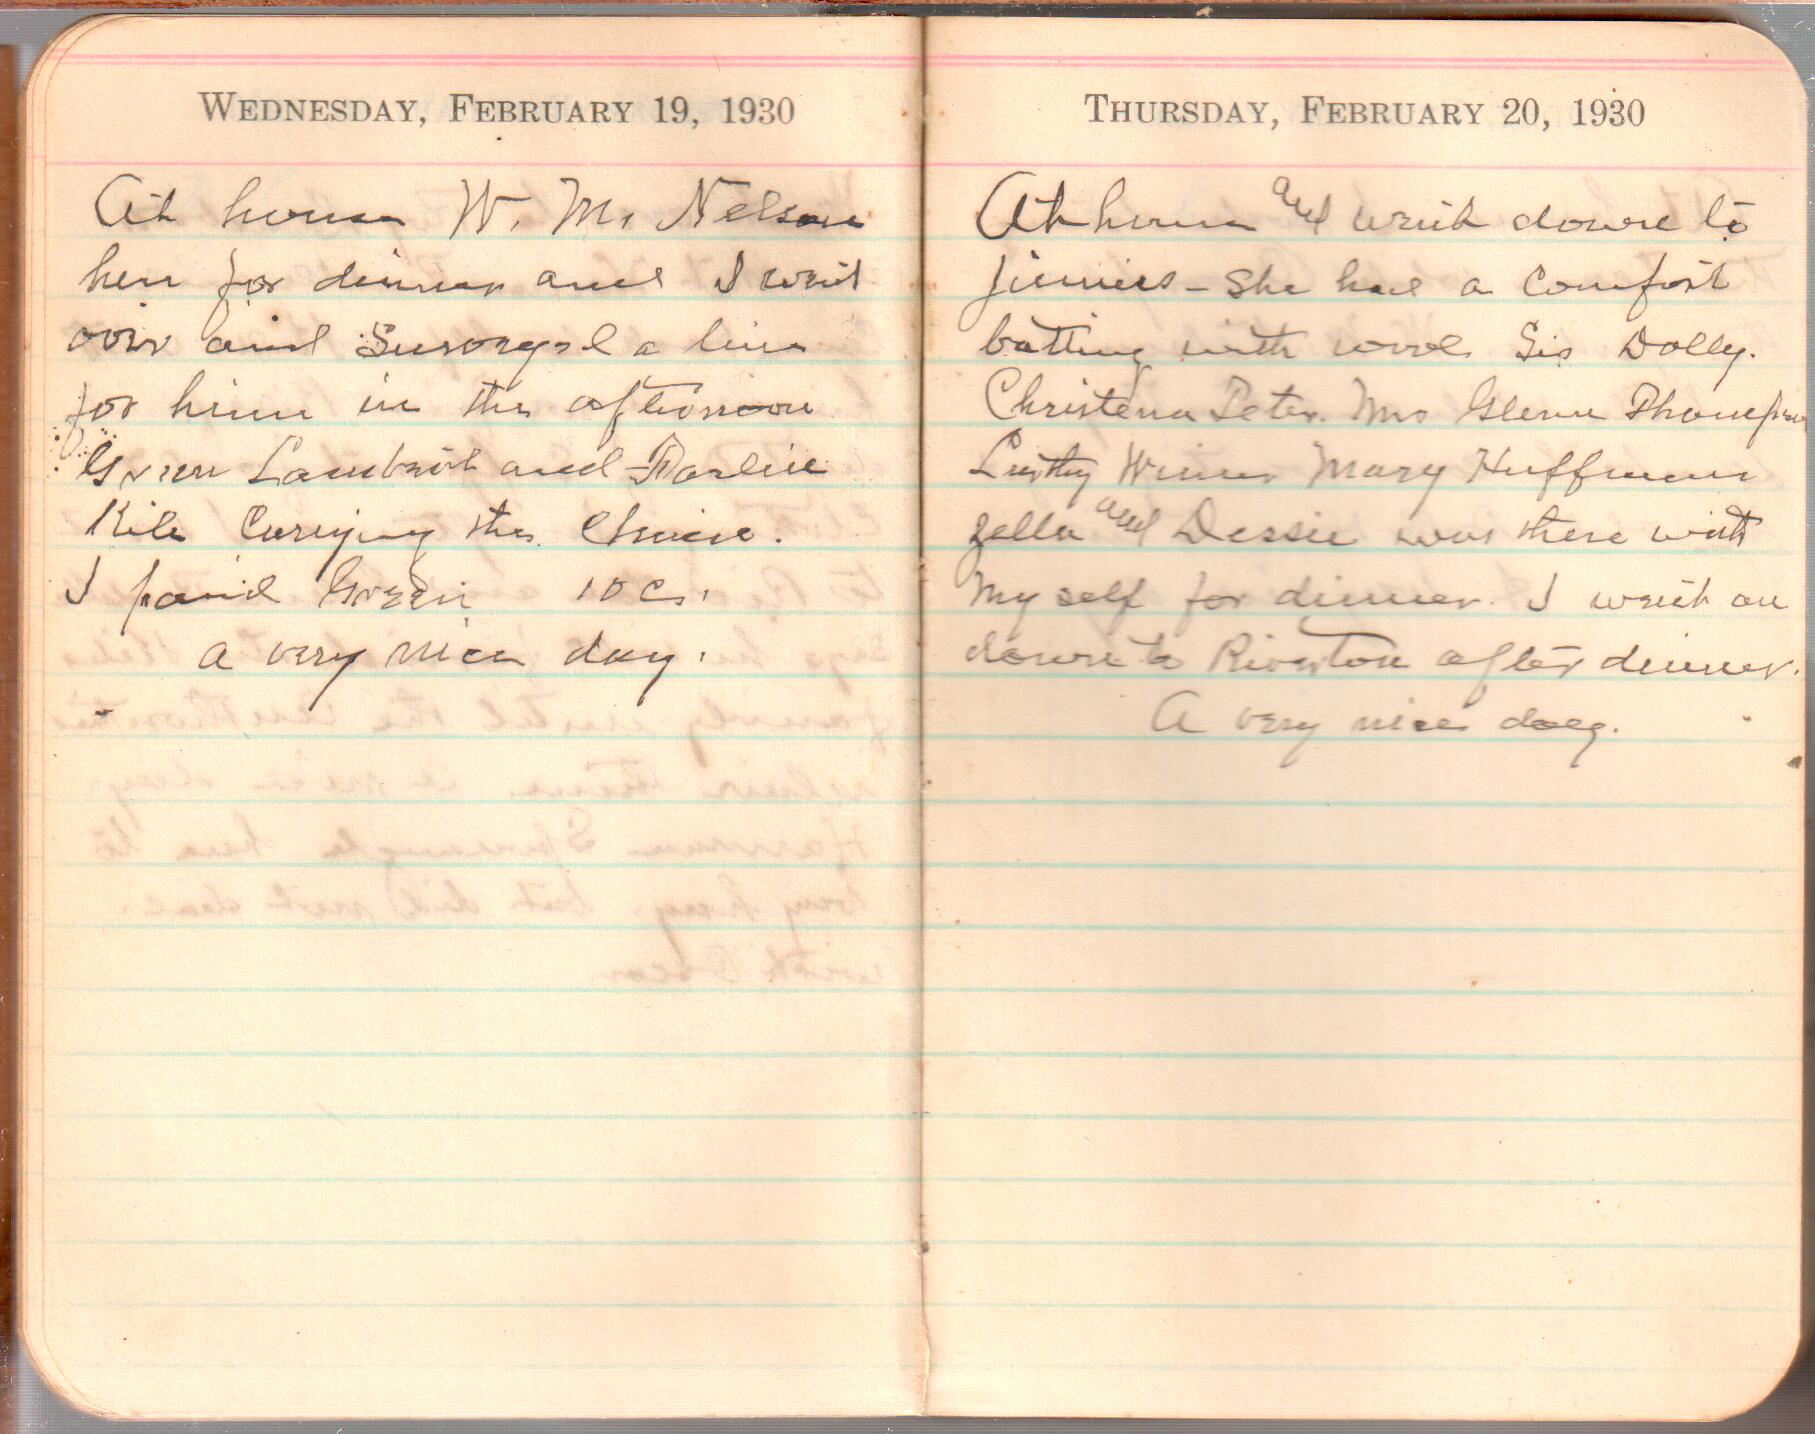 WEDNESDAY, FEBRUARY 19, 1930
At home W. M. Nelson
here for dinner and I went
over and Surveyed a line
for him in the afternoon
Green Lambert and
Kile Carrying the Chain.
I paid Green 10 c.
a very nice day.
THURSDAY, FEBRUARY 20, 1930
At home and went down to
Jinnies - She had a Comfort
batting with wool Sis Dolly.
Christena Teter. Mrs Glenn Thompson
Winner Mary Huffman
Zella and Dessie was there with
My self for dinner. I went on
down to Riverton after dinner.
A very nice day.